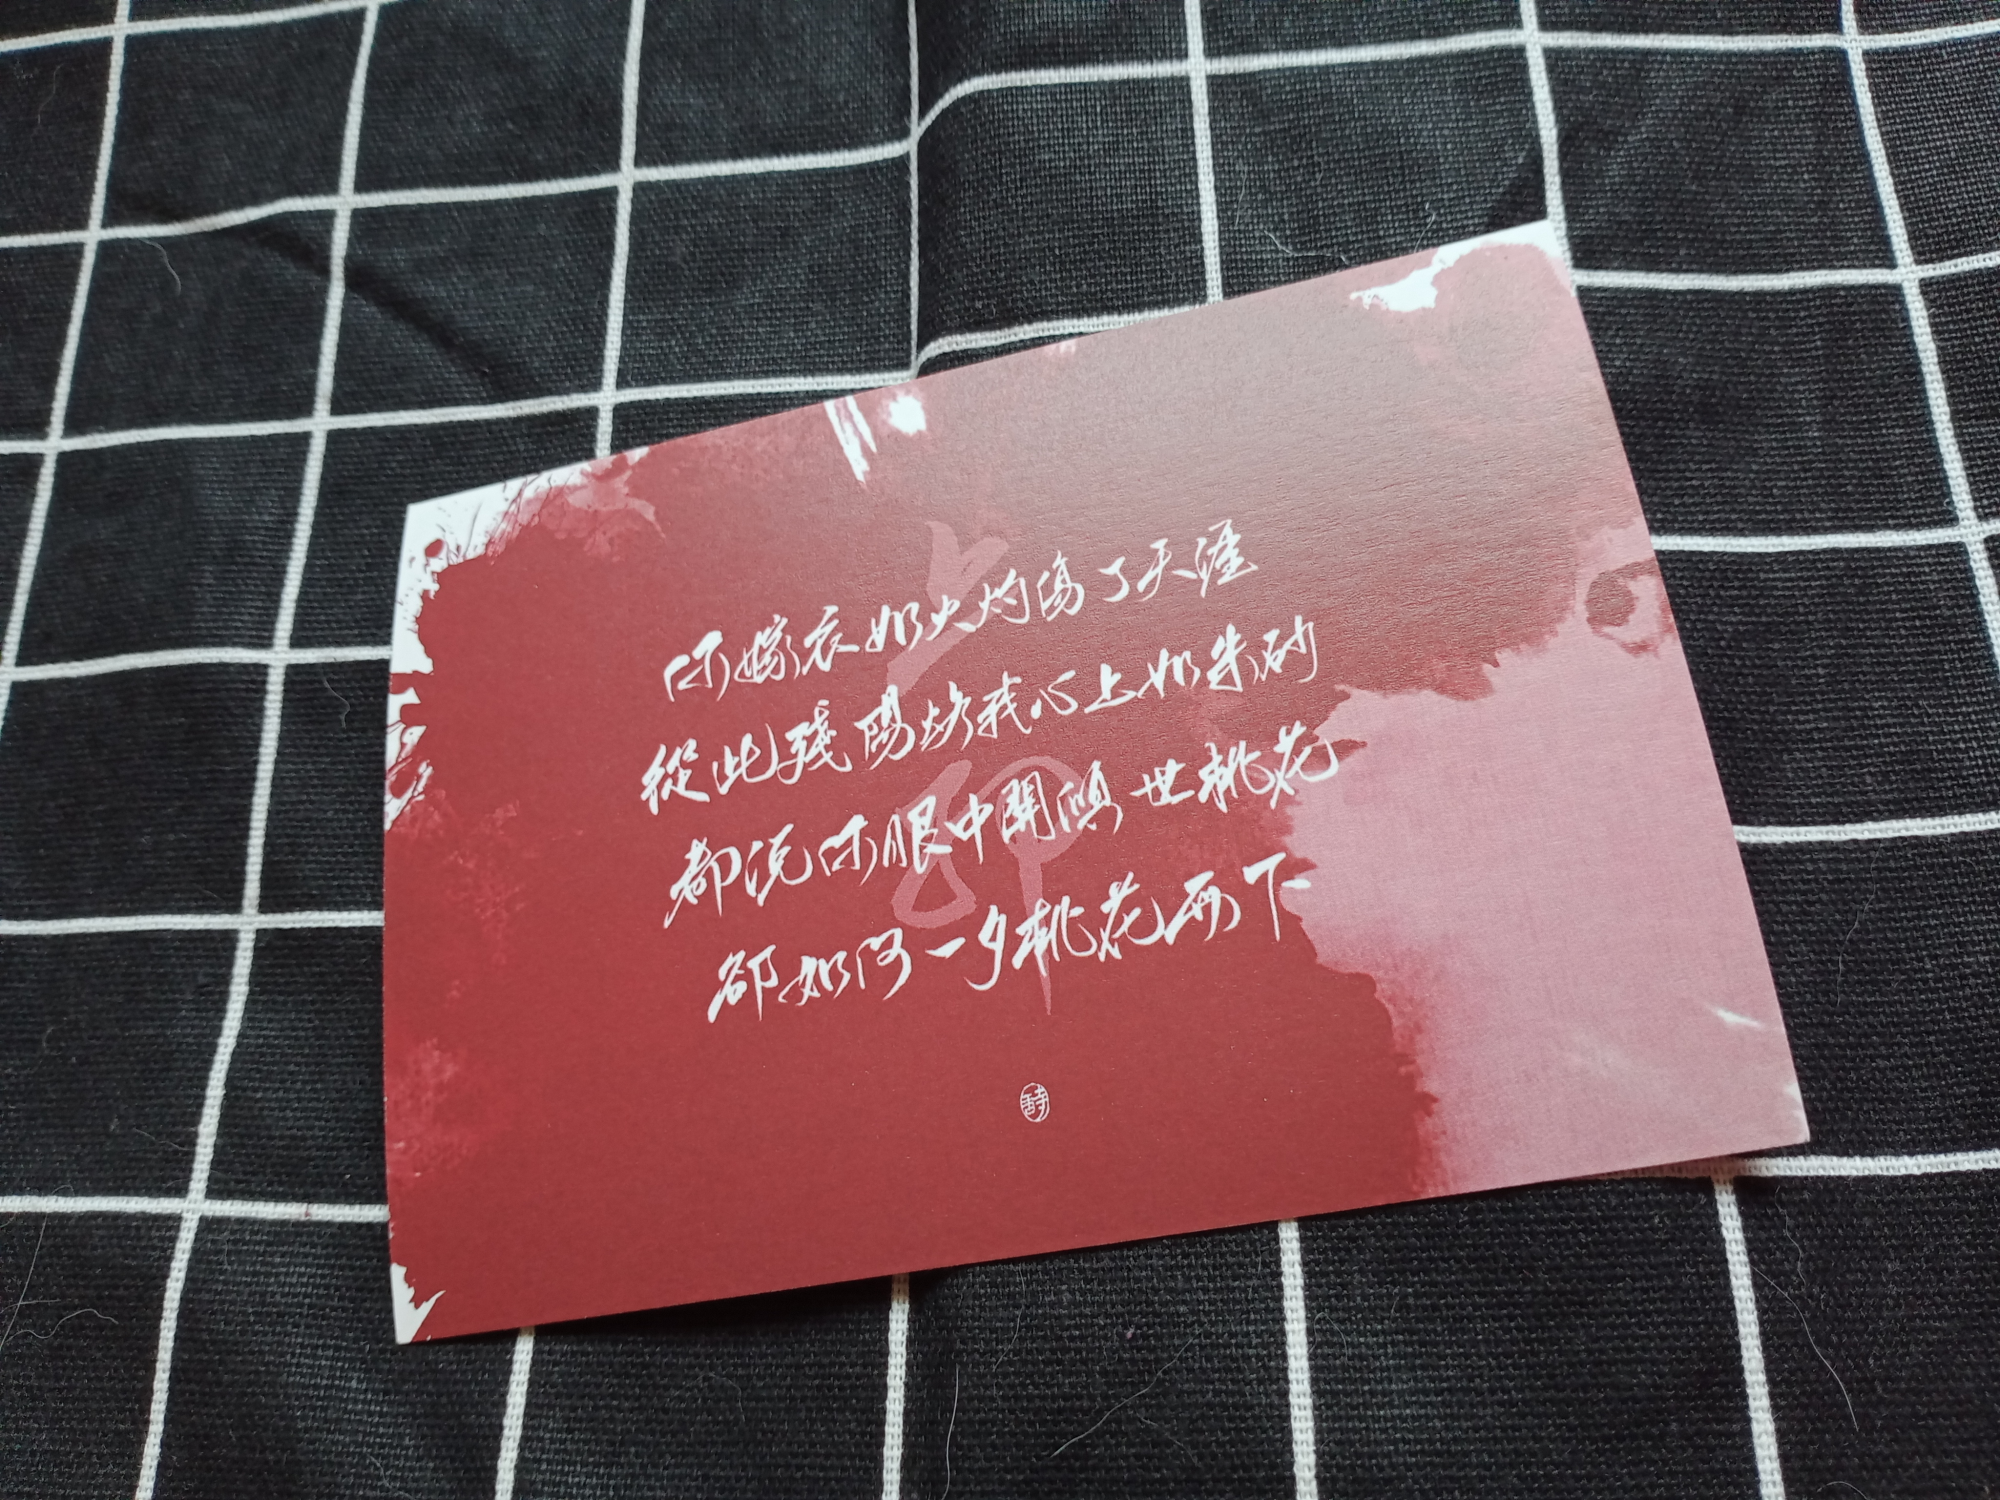 你嫁衣如火灼傷了天涯
從此殘陽烙我心上如朱砂
都說你眼中開傾世桃花
卻如何一夕桃花雨下
上邪